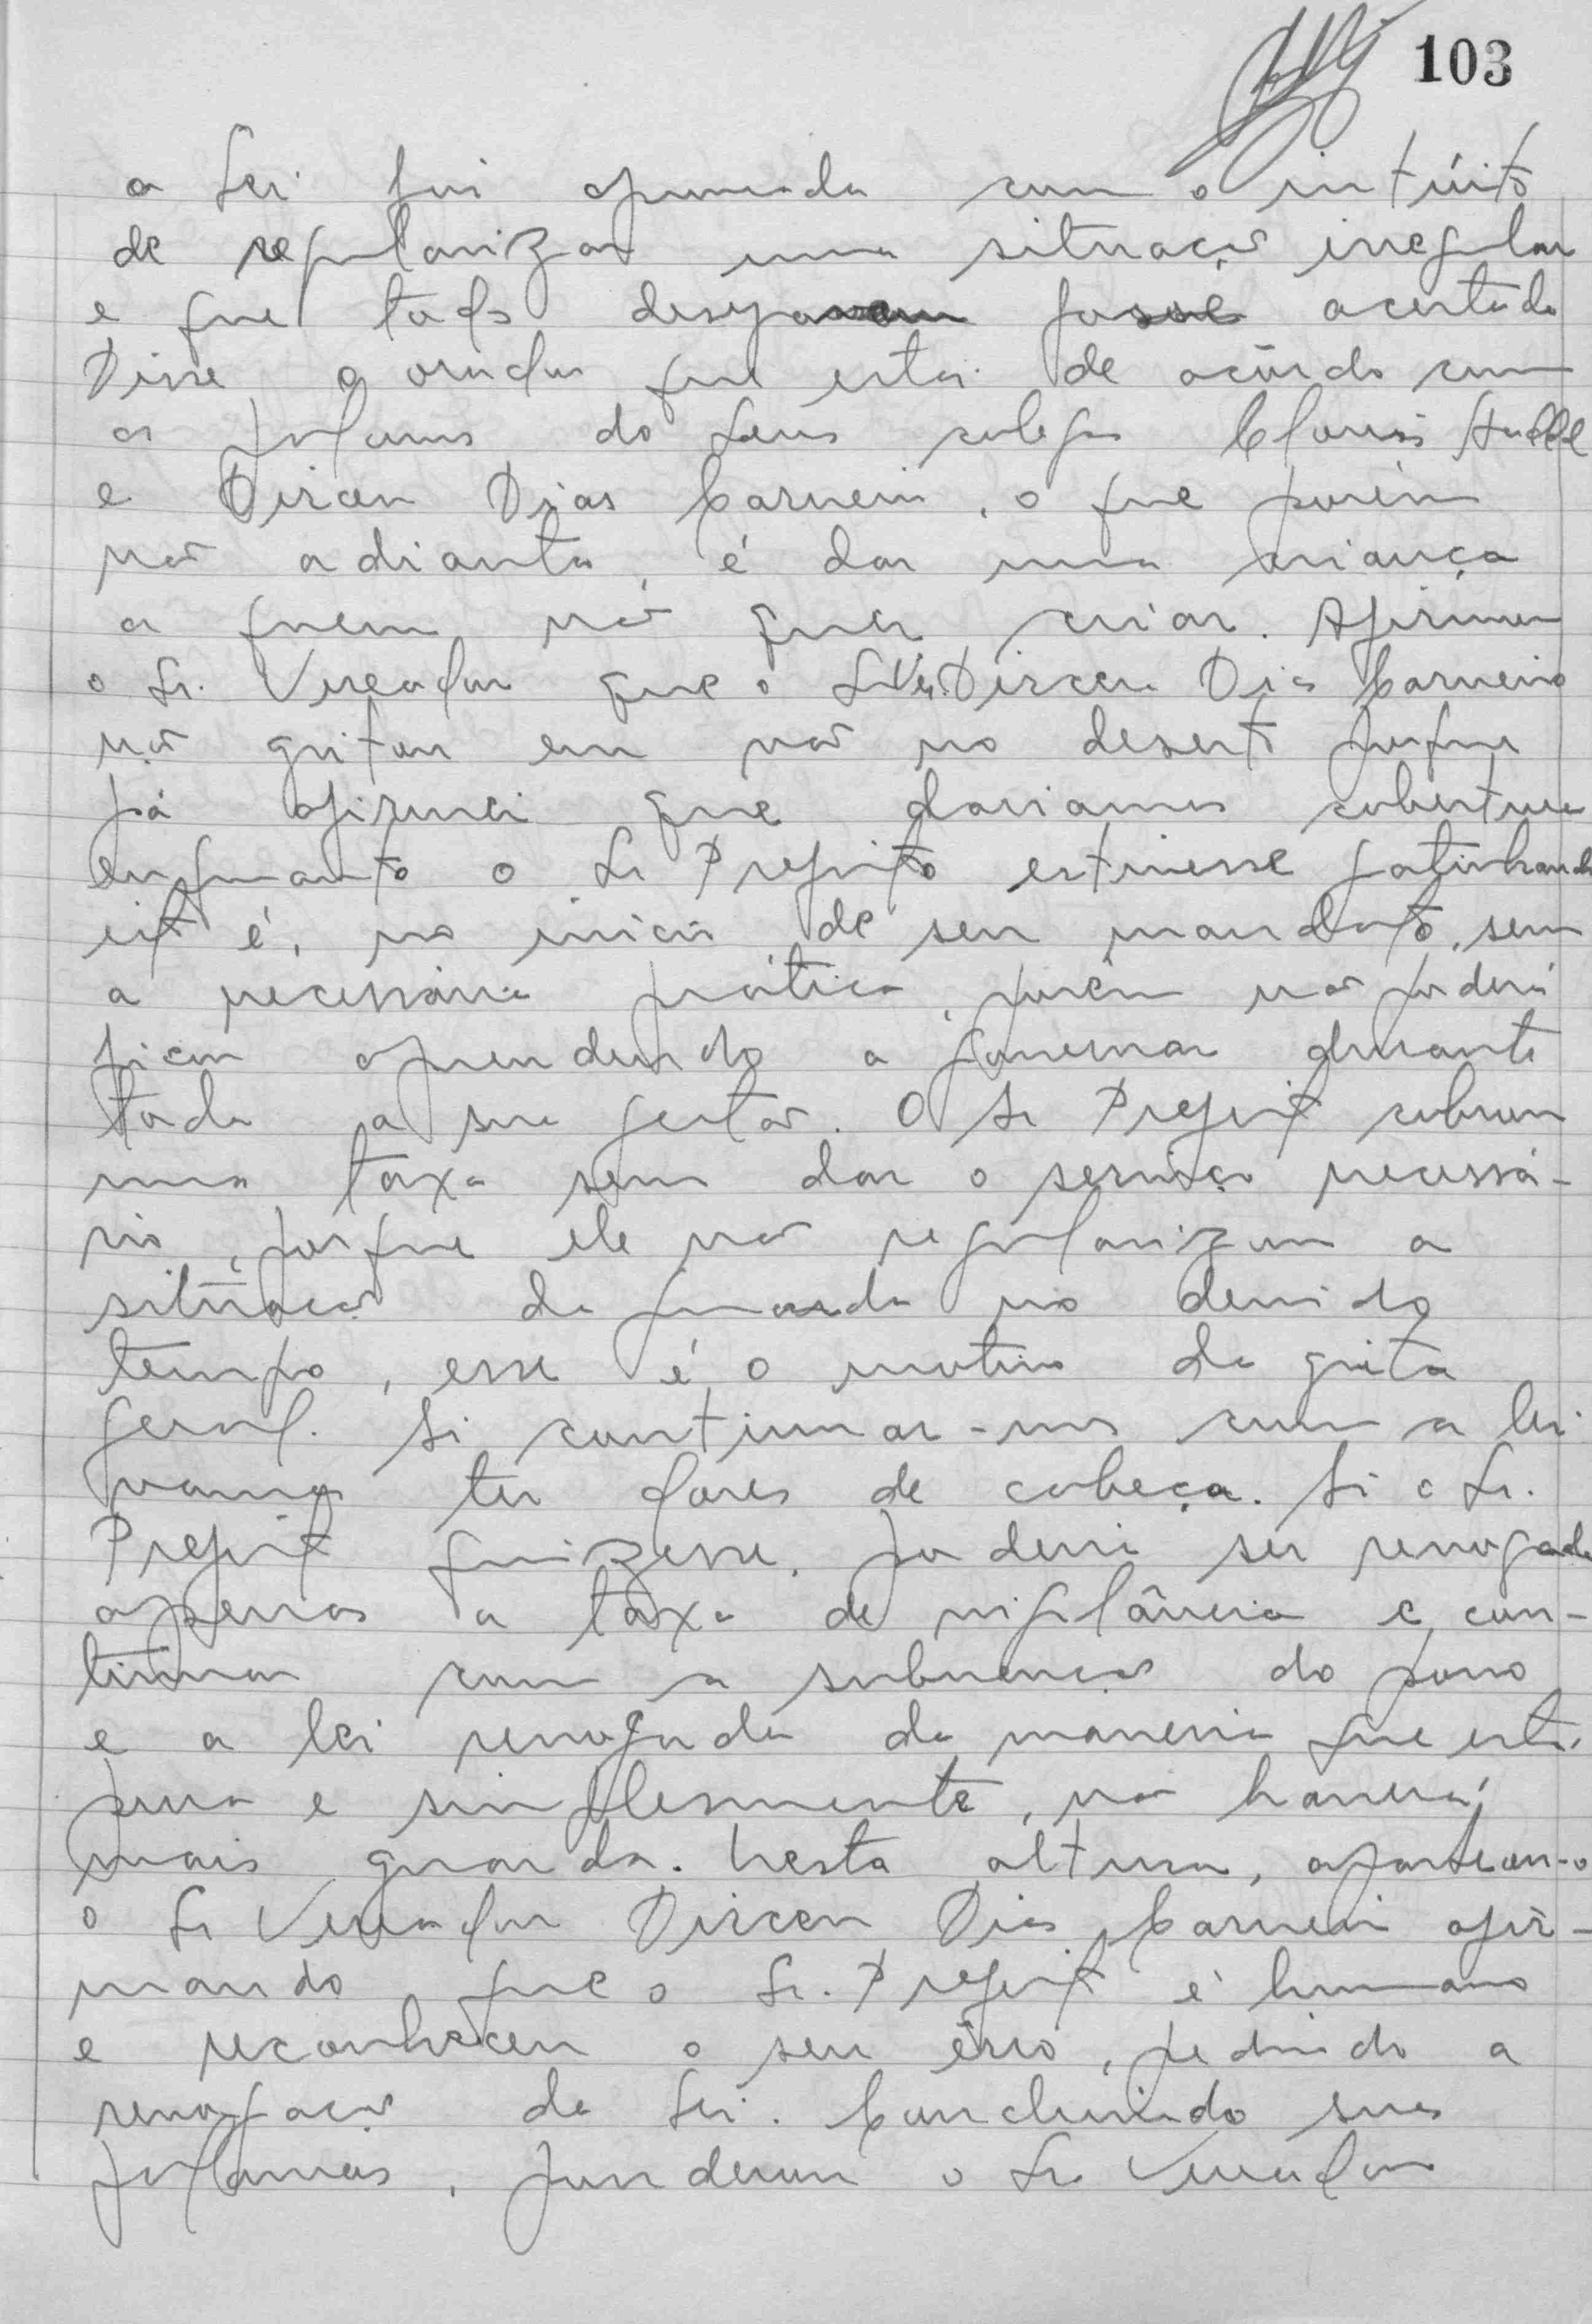 103
a Lei foi aprovada com o intúito
de regularizar uma situação irregular
e que todos desejavam fosse acertada
Disse o orador que está de acôrdo com
as palavras do seus colegas Clovis
e Dirceu Dias Carneiro, o que porém
não adianta, é dar uma criança
a quem não quer criar. Afirmou
o Sr. Vereador que o Sr. Ver. Dirceu Dias Carneiro
não gritou em vão no deserto porque
já afirmei que dariamos cobertura
enquanto o Sr Prefeito estivesse gatinhando
isto é, no inicio de seu mandato, sem
a necessária prática, porém não poderá
ficar aprendendo a governar durante
toda a sua gestão. O Sr Prefeito cobrou
uma taxa sem dar o serviço necessá-
rio, porque ele não regularizou a
situação da guarda no devido
tempo, esse é o motivo da grita
geral. Si continuar-mos com a lei
vamos ter dores de cabeça. Si o Sr.
Prefeito quizesse, poderia ser revogada
apenas a taxa de vigilância e con-
tinuar com a subvenção do povo
e a lei revogada da maneira que está,
pura e simplesmente, não haverá
mais guarda. Nesta altura, aparteou-o
o Sr Vereador Dirceu Dias Carneiro afir-
mando que o Sr. Prefeito é humano
e reconheceu o seu êrro, pedindo a
revogação da Lei. Concluindo suas
palavras, ponderou o Sr. Vereador